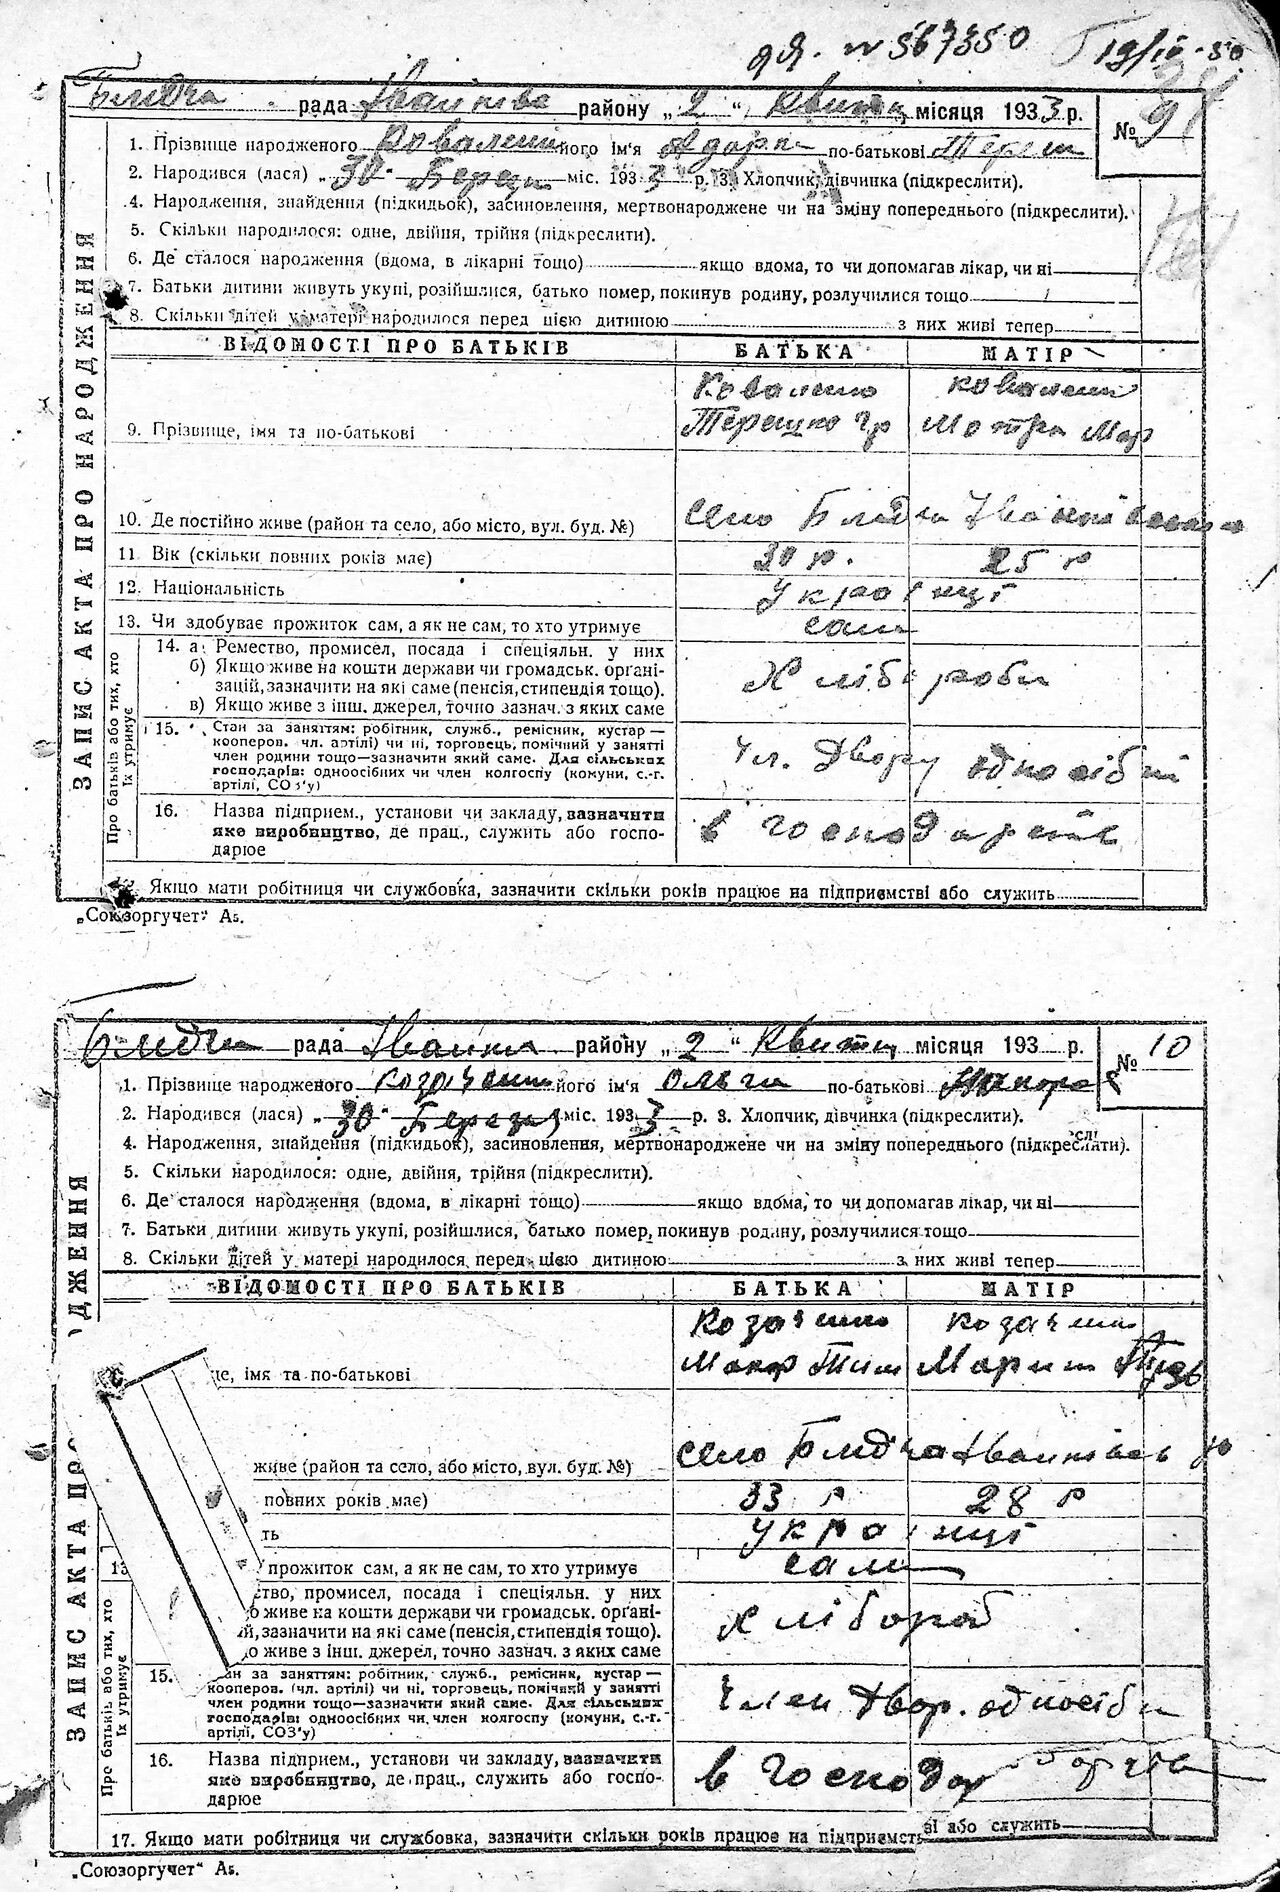 № 567350 19/IV-50
Блидча рада Іванківс району „2“ Квітц місяця 1933 р. № 9
1. Прізвище народженого Коваленко його ім'я Одарка по-батькові Тереш
2. Народився (лася) „30“ Берез міс. 1933 р. 3. Хлопчик, дівчинка (підкреслити).
4. Народження, знайдення (підкидьок), засиновлення, мертвонароджене чи на зміну попереднього (підкреслити).
5. Скільки народилося: одне, двійня, трійня (підкреслити).
6. Де сталося народження (вдома, в лікарні тощо) якщо вдома, то чи допомагав лікар, чи ні
7. Батьки дитини живуть укупі, розійшлися, батько помер, покинув родину, розлучилися тощо
8. Скільки дітей у матері народилося перед цією дитиною з них живі тепер
ЗАПИС АКТА ПРО НАРОДЖЕННЯ
ВІДОМОСТІ ПРО БАТЬКІВ БАТЬКА МАТІР
Коваленко Коваленк
9. Прізвище, імя та по-батькові Терешко Гр Мотря Мар
10. Де постійно живе (район та село, або місто, вул. буд. №) село Блидча
11. Вік (скільки повних років має) 30 р. 25 р
12. Національність Українці
13. Чи здобуває прожиток сам, а як не сам, то хто утримує сами
Про батьків або тих, хто їх утримує
14. а) Ремество, промисел, посада і спеціяльн. у них
б) Якщо живе на кошти держави чи громадськ. організацій, зазначити на які саме (пенсія, стипендія тощо). Хлібороби
в) Якщо живе з інш. джерел, точно зазнач. з яких саме
15. Стан за заняттям: робітник, служб., ремісник, кустар —
кооперов. чл. артілі) чи ні, торговець, помічний у занятті
член родини тощо—зазначити який саме. Для сільських
господарів: одноосібних чи член колгоспу (комуни, с.-г.
артілі, СОЗ'у) Чл. двору односібні
16. Назва підприєм., установи чи закладу, зазначити
яке виробництво, де прац., служить або госпо-
дарює в господарстві
Якщо мати робітниця чи службовка, зазначити скільки років працює на підприємстві або служить
„Союзоргучет“ А₅.
Блидча рада Іванкі району „2“ Квітц місяця 193 р. № 10
1. Прізвище народженого Козаченк його ім'я Ольга по-батькові Макаров
2. Народився (лася) „30“ Березня міс. 1933 р. 3. Хлопчик, дівчинка (підкреслити).
4. Народження, знайдення (підкидьок), засиновлення, мертвонароджене чи на зміну попереднього (підкреслити).
5. Скільки народилося: одне, двійня, трійня (підкреслити).
6. Де сталося народження (вдома, в лікарні тощо) якщо вдома, то чи допомагав лікар, чи ні
7. Батьки дитини живуть укупі, розійшлися, батько помер, покинув родину, розлучилися тощо
8. Скільки дітей у матері народилося перед цією дитиною з них живі тепер
ЗАПИС АКТА ПРО ДЖЕННЯ
ВІДОМОСТІ ПРО БАТЬКІВ БАТЬКА МАТІР
Козаченко Козаченк
це, імя та по-батькові Макар Тим
живе (район та село, або місто, вул. буд. №) село Блидча
повних років має) 33 р 28 р
ть Українці
13 прожиток сам, а як не сам, то хто утримує сами
Про батьків або тих, хто їх утримує
ство, промисел, посада і спеціяльн. у них
о живе на кошти держави чи громадськ. органі-
й, зазначити на які саме (пенсія, стипендія тощо). Хлібороб
о живе з інш. джерел, точно зазнач. з яких саме
15. ан за заняттям: робітник, служб., ремісник, кустар —
кооперов. (чл. артілі) чи ні, торговець, помічний у занятті
член родини тощо—зазначити який саме. Для сільських
господарів: одноосібних чи член колгоспу (комуни, с.-г.
артілі, СОЗ'у) Член двор. односібн
16. Назва підприєм., установи чи закладу, зазначити
яке виробництво, де прац., служить або госпо-
дарює в господар
17. Якщо мати робітниця чи службовка, зазначити скільки років працює на підприємст ві або служить
„Союзоргучет“ А₅.